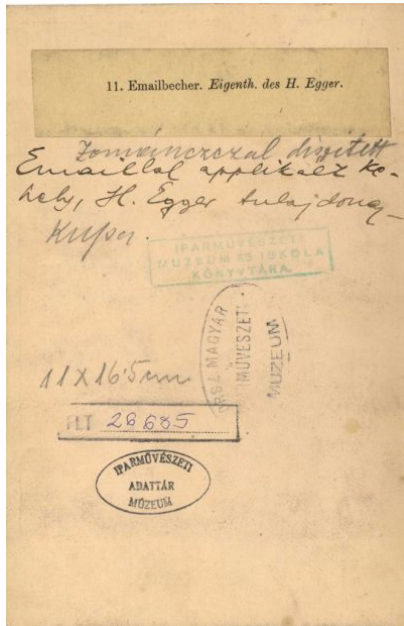 11. Emailbecher. Eigenth. des H. Egger.
Zománczczal díszitett
Emaillal applikált ke-
hely, H. Egger tulajdona,
Kupa.
IPARMŰVÉSZETI
MUZEUM ÉS ISKOLA
KÖNYVTÁRA.
ORSZ. MAGYAR
IPARMŰVESZETI
MUZEUM
11 X 16.5 cm
FLT 26685
IPARMŰVÉSZETI
ADATTÁR
MÚZEUM